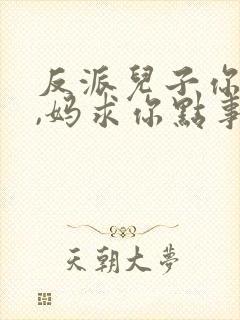 反派兒子你
,妈求你點事
天朝大夢